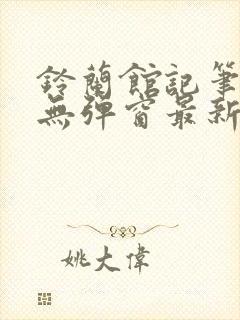 鈴蘭館記筆
無彈窗最新
姚大偉